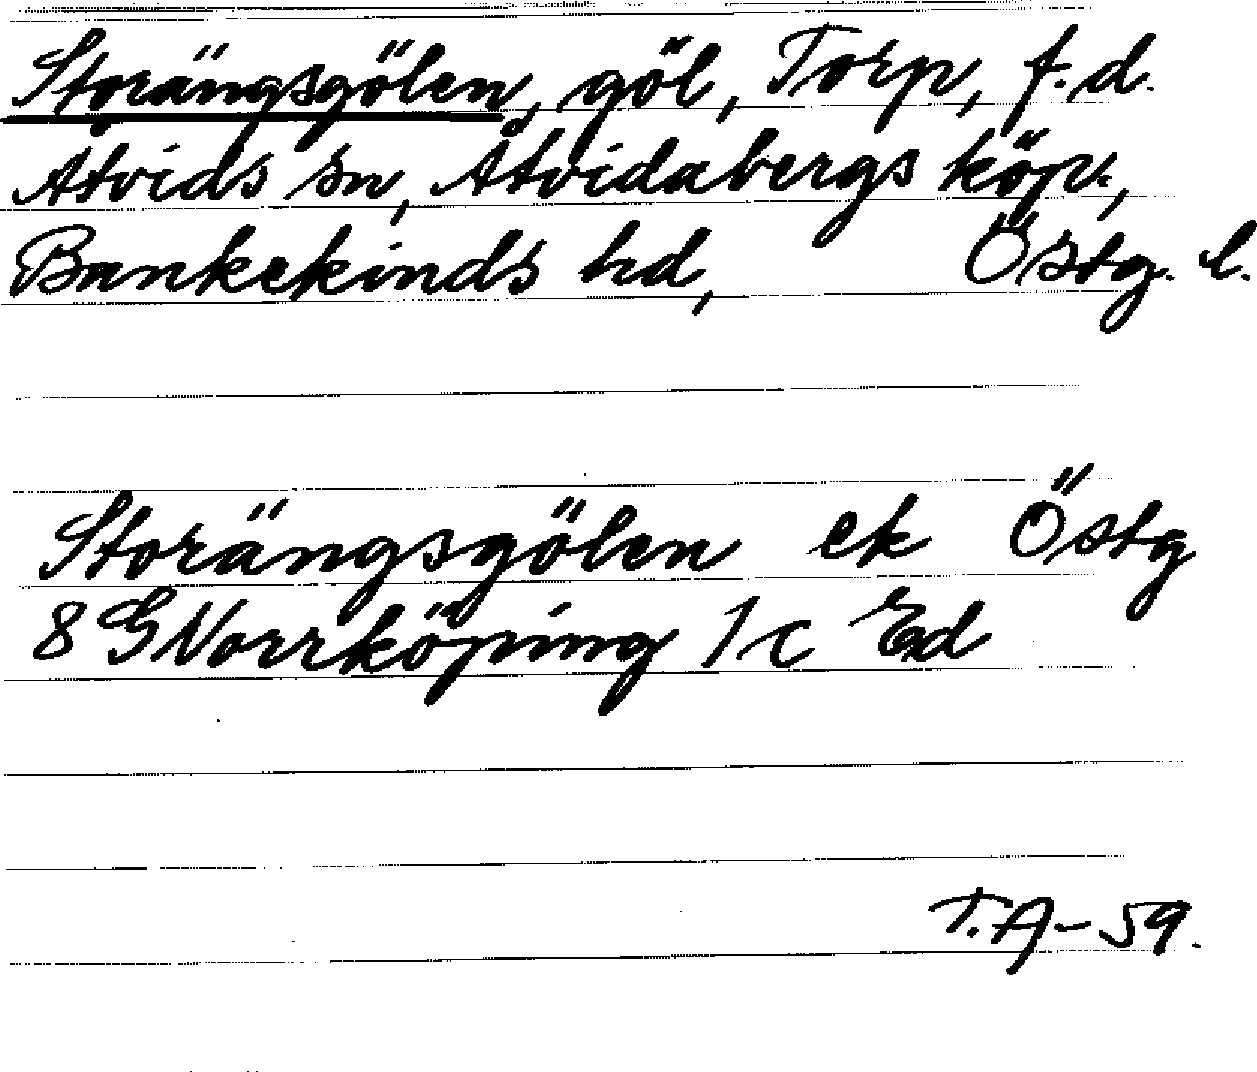 Storängsgölen, göl, Torp, f.d.
Åtvids sn, Åtvidabergs köp.,
Bankekinds hd, Östg. l.
Storängsgölen ek Östg
8 G Norrköping 1 c Ed
T.A-59.